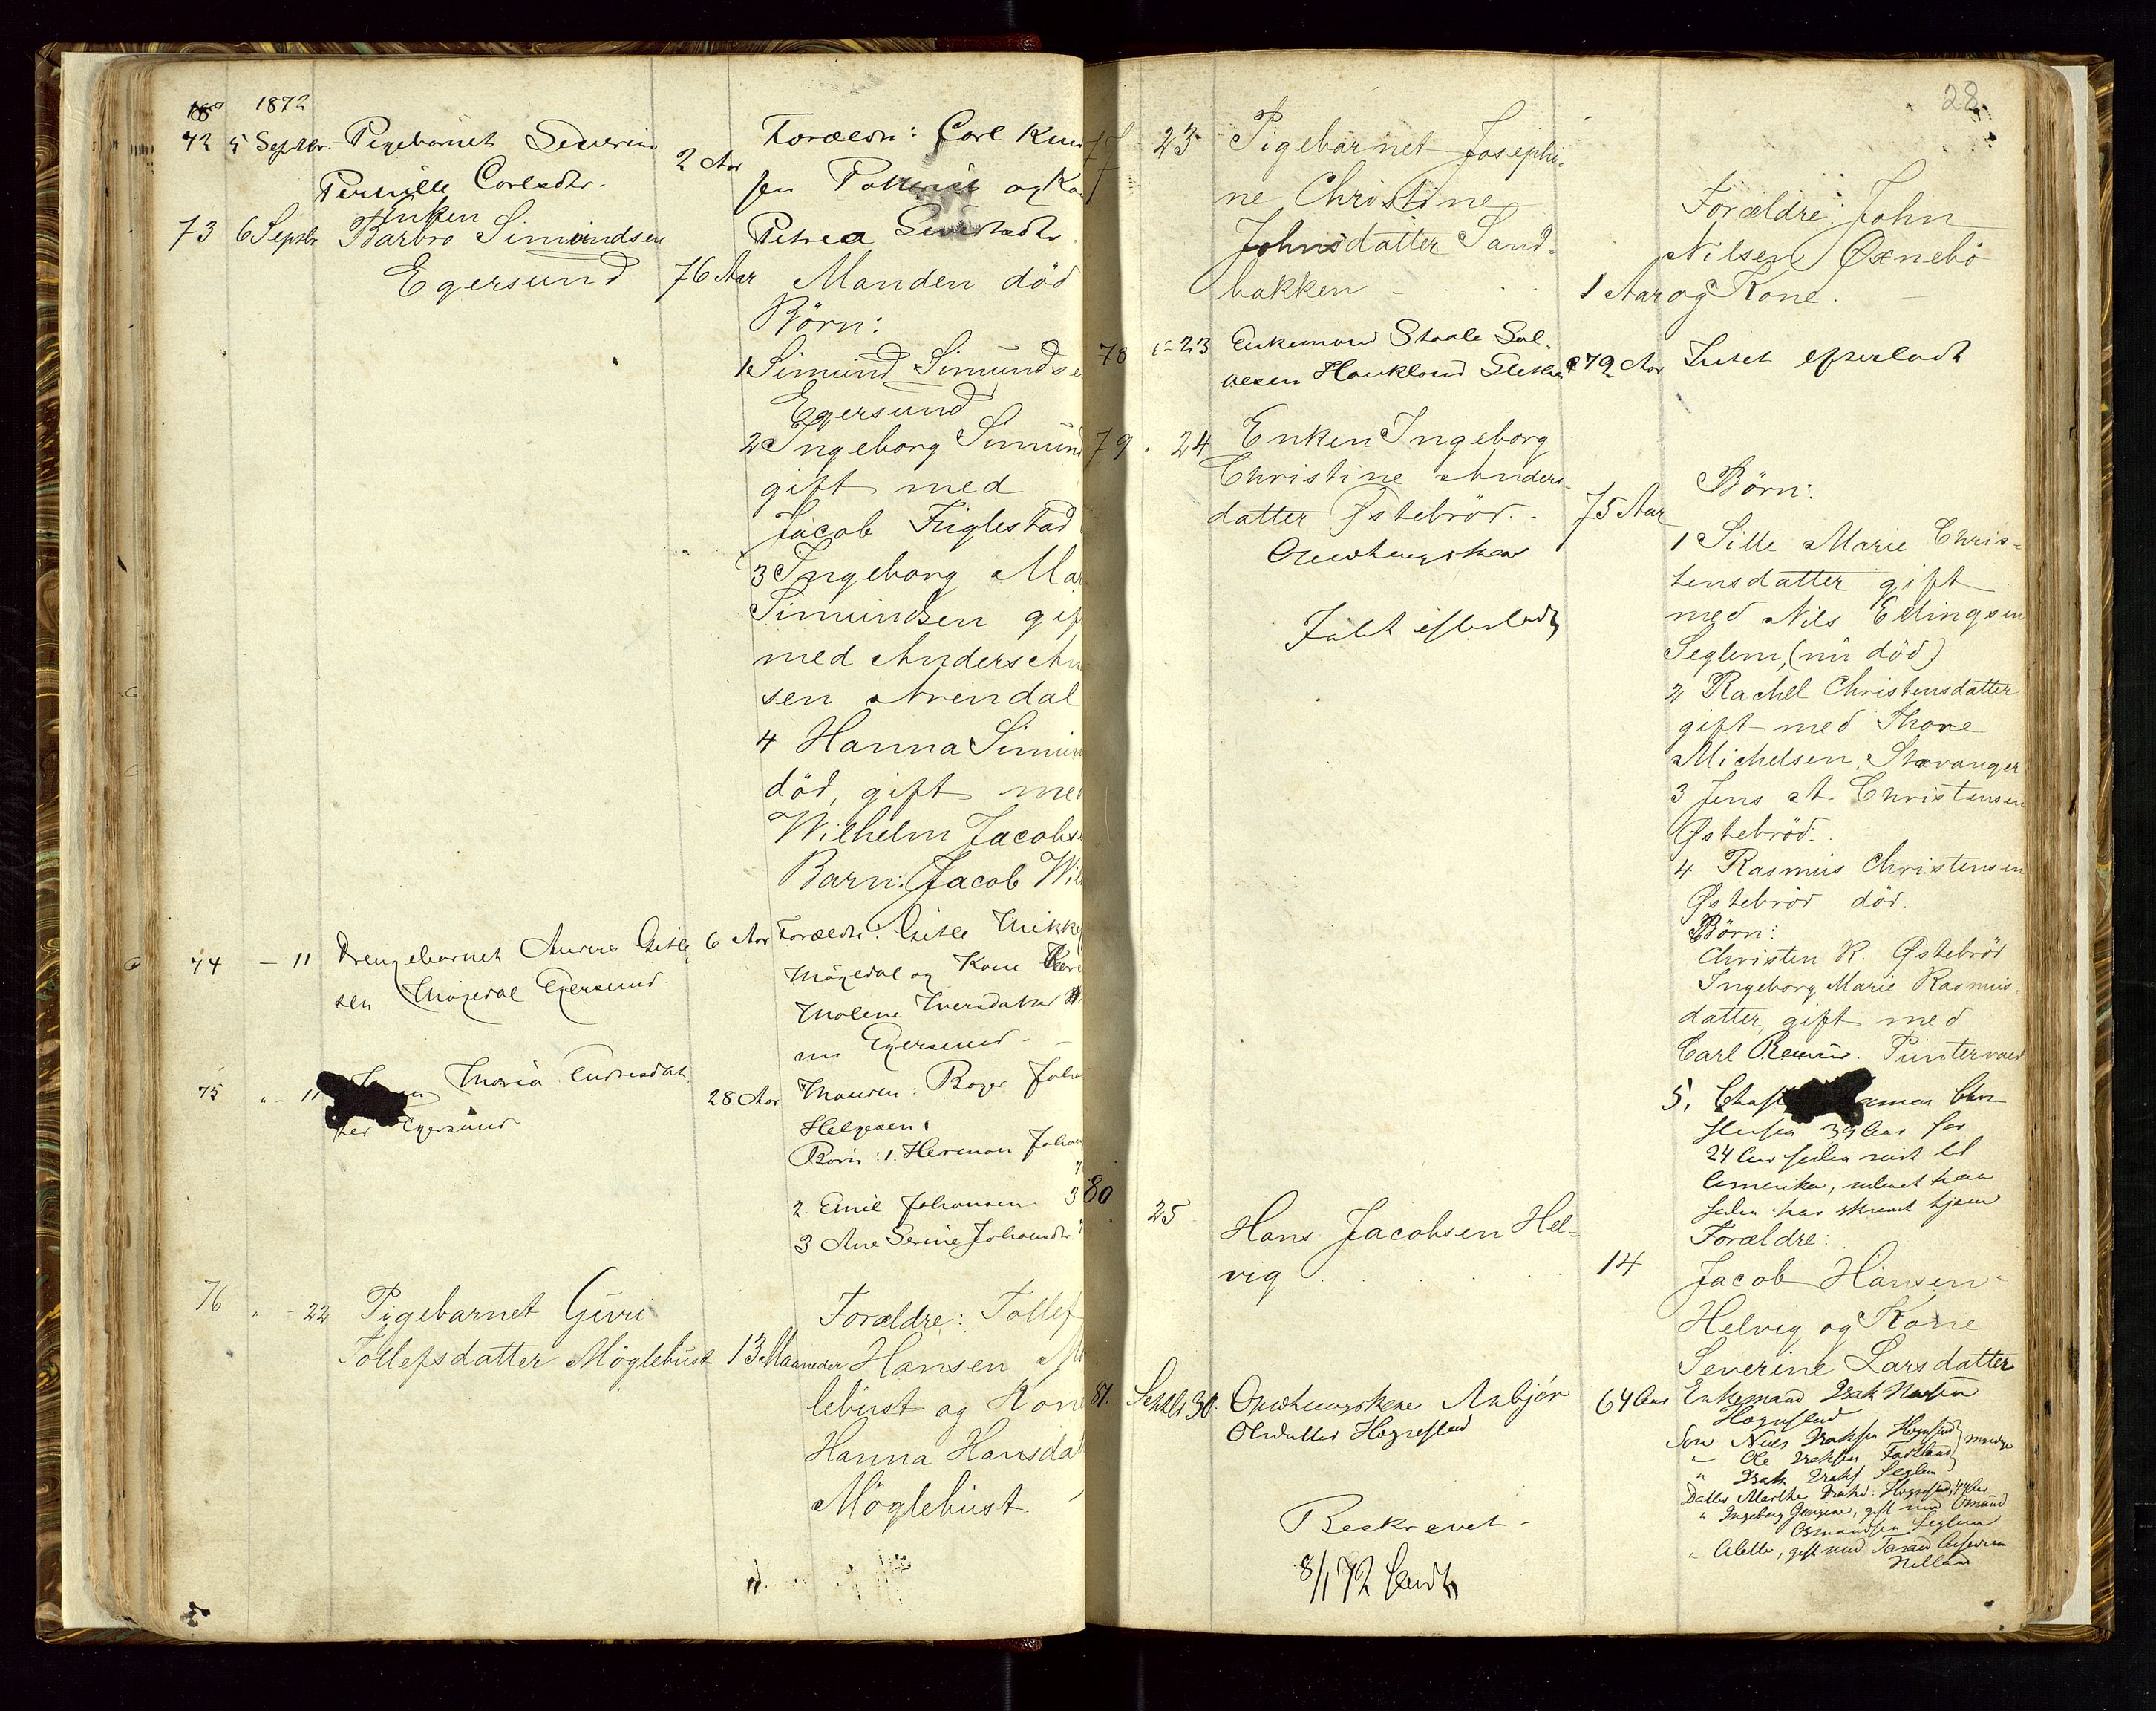 1872
72 5 Septbr. Pigebarnet Severine
Pernille Carlsdtr.
2 Aar
Forældre: Carl Knud
sen og Ko
Petrea
73 6 Septbr Enken
Barbro Simundsen
Egersund 76 Aar Manden död
Börn:
1 Simund Simundse
Egersund
2 Ingeborg Simund
gift med
Jacob Fuglestad
3 Ingeborg Ma
Simundsen gif
med Anders An
sen Arendal
4 Hanna Simun
död, gift med
Wilhelm Jacobs
Barn: Jacob Wil
74 - 11 Drengebarnet Gitle
sen Mögedal Egersund
6 Aar Forældre: Gitle Mikk
Mögedal og Kone
Malene Iversdatter
nu Egersund -
75 " - 11 Maria Endresdat
ter Egersund
28 Aar Manden: Roger Joha
Helgesen
Börn: 1. Herman Johan
2. Emil Johansen 3
3. Ane Serine Johansdtr.
76 " - 22 Pigebarnet Guri
Tollefsdatter Möglebust 13 Maaneder
Forældre: Tollef
Hansen Mö
lebust og Kone
Hanna Hansdat
Möglebust
28
77 23 Pigebarnet Josephi-
ne Christine
Johnsdatter Sand-
bakken
1 Aar
Forældre: John
Nilsen Øxnebö
og Kone.
78 23 Enkemand Staale Sal-
vesen Haukland
79 Aar Intet efterladt
79 24 Enken Ingeborg
Christine Anders-
datter Østebröd.
75 Aar
Intet efterladt
Börn:
1 Sille Marie Chris-
tensdatter gift
med Nils Edlingsen
Seglem, (nu död)
2 Rachel Christensdatter
gift med Thore
Michelsen, Stavanger
3 Jens A Christensen
Østebröd.
4 Rasmus Christensen
Østebröd död.
Börn:
Christen R. Østebröd
Ingeborg Marie Rasmus-
datter, gift med
Carl Puntervold
5. Chri
stensen 39 Aar for
24 Aar siden reist til
Amerika,
siden har skrevet hjem
80 25 Hans Jacobsen Hel-
vig 14
Forældre:
Jacob Hansen
Helvig og Kone
Severine Larsdatter
81. Septbr 30. Asbjör
Olsdatter Hognestad
64 Aar Enkemand
Hognestad
Sön Niels Hognestad
" Ole
" Seglem
Datter Marthe
" Ingeborg gift med Omund
Osmundsen Seglem
" gift med
Beskrevet -
8/1 72 Sendt